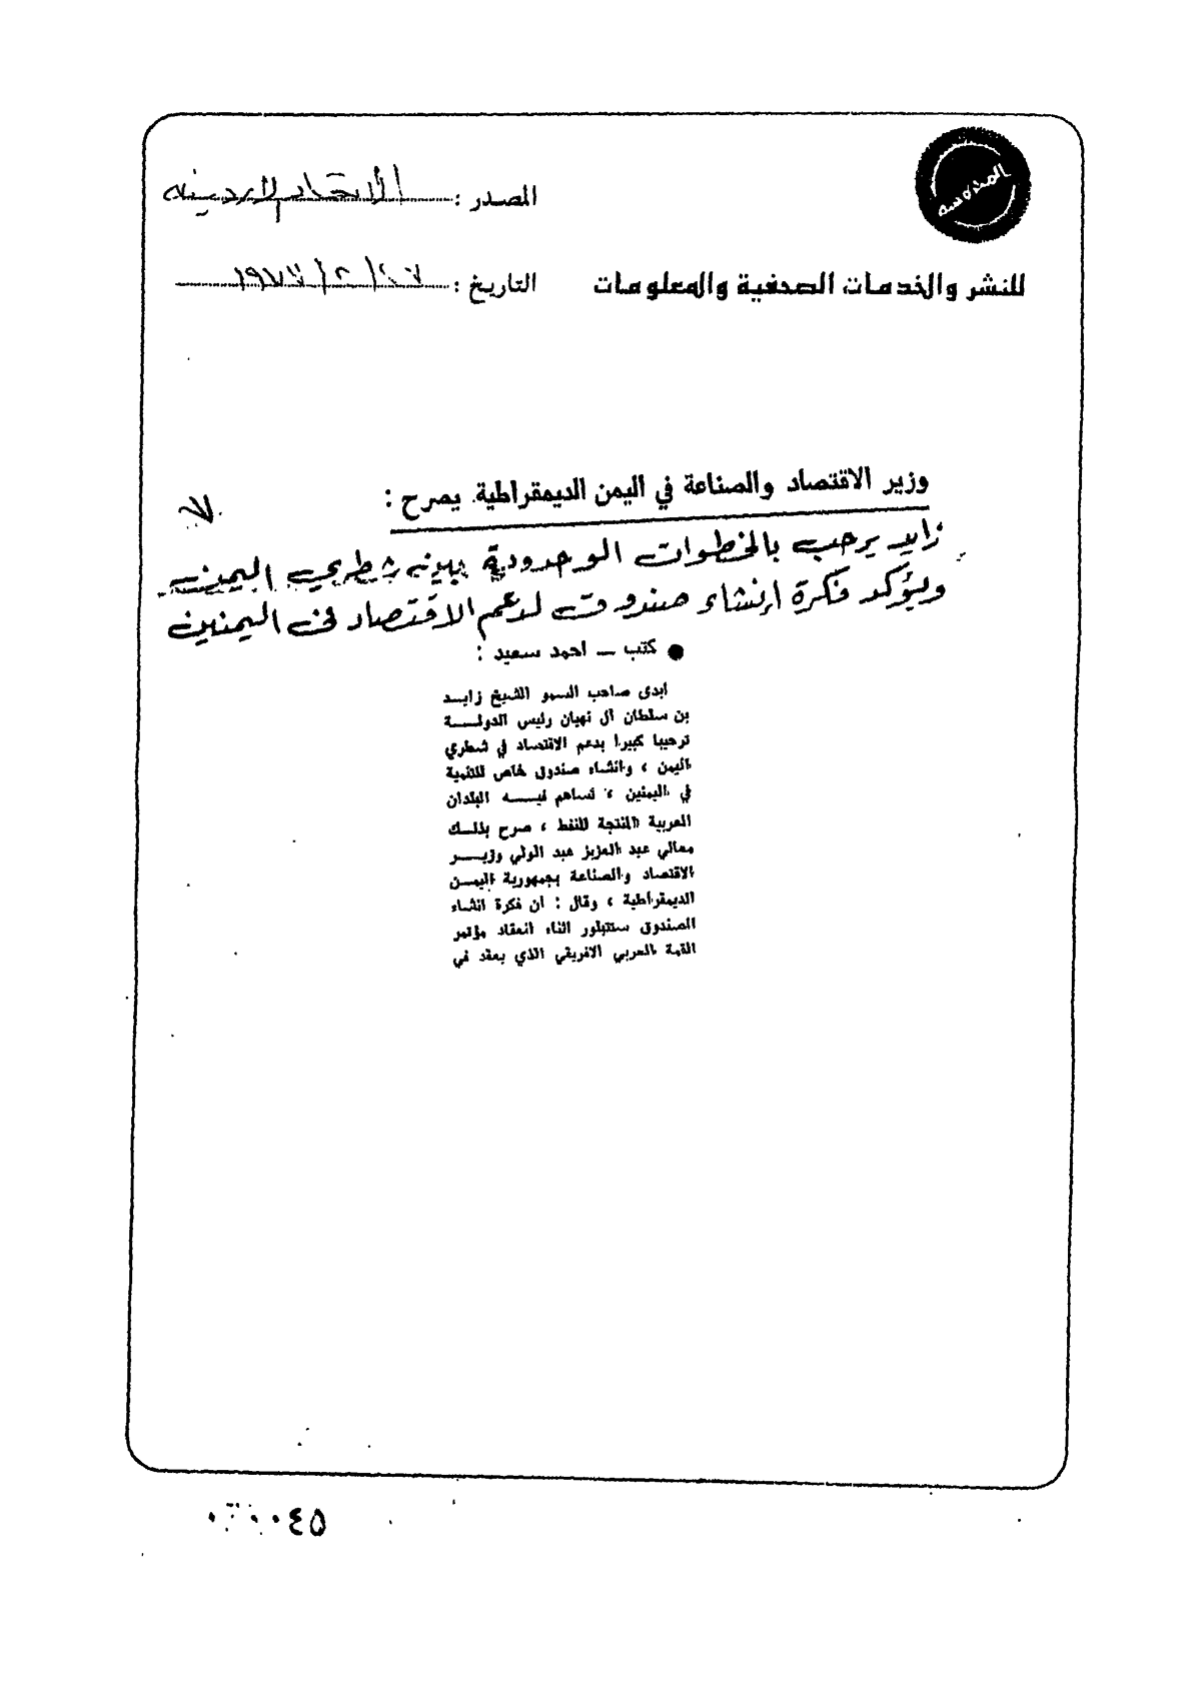 المصدر :
التاريخ :
للنشر والخدمات الصحفية والمعلومات
وزير الاقتصاد والصناعة في اليمن الديمقراطية يصرح :
زايد يرحب بالخطوات الوحدوية بين شطري اليمن
ويؤكد فكرة إنشاء صندوق لدعم الاقتصاد في اليمنين
● كتب — احمد سعيد :
ابدى صاحب السمو الشيخ زايـد
بن سلطان آل نهيان رئيس الدولـــة
ترحيبا كبيرا بدعم الاقتصاد في شطري
اليمن ، وانشاء صندوق خاص للتنمية
في اليمنين ، تساهم فيـــه البلدان
العربية المنتجة للنفط ، صرح بذلـك
معالي عبد العزيز عبد الولي وزيـــر
الاقتصاد والصناعة بجمهورية اليمـن
الديمقراطية ، وقال : ان فكرة انشاء
الصندوق ستتبلور اثناء انعقاد مؤتمر
القمة العربي الافريقي الذي يعقد في